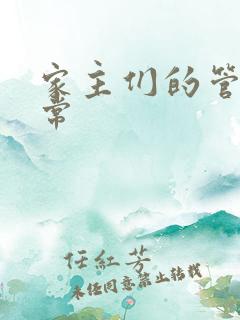 家主们的管
常
任紅芳
未经同意禁止转载